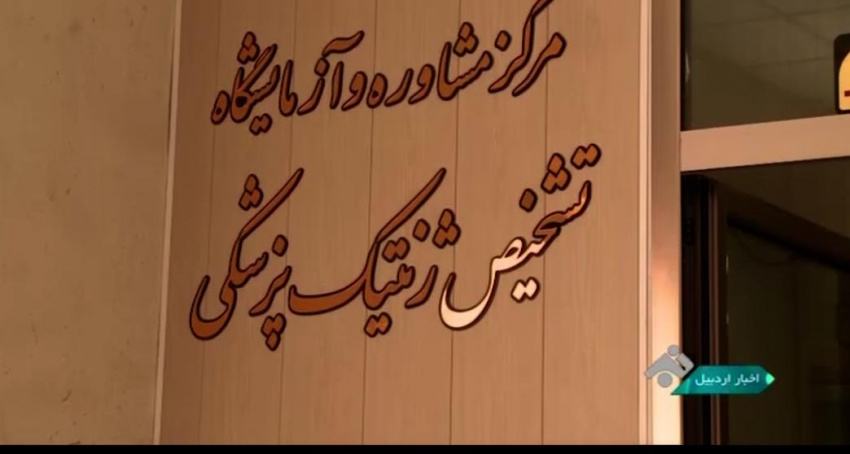 مرکز مشاوره و آزمایشگاه
تشخیص ژنتیک پزشکی
اخبار اردبیل